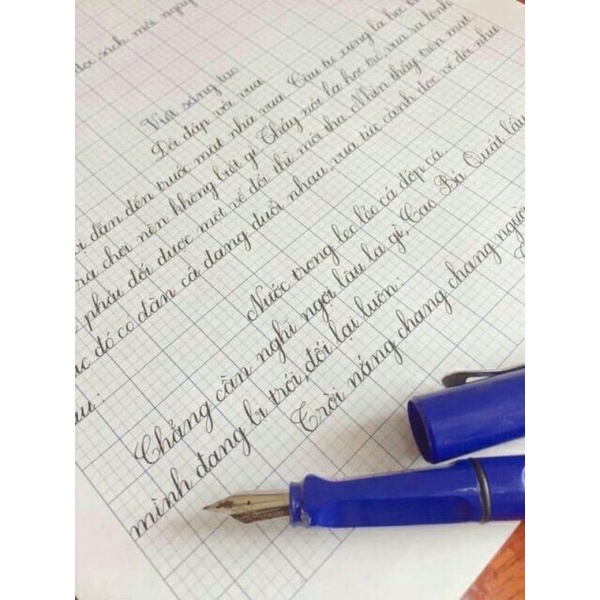 đọc sách mỗi ngày
Viết sáng tạo
Đối đáp với vua
bị dẫn đến trước mặt nhà vua. Cậu tự xưng là học trò
ra chơi nên không biết gì. Thấy nói là học trò, vua ra lệnh
phải đối được một vế đối thì mới tha. Nhìn thấy trên mặt
lúc đó có đàn cá đang đuổi nhau, vua tức cảnh đọc vế đối như
sau:
Nước trong leo lẻo cá đớp cá
Chẳng cần nghĩ ngợi lâu la gì, Cao Bá Quát lấy
mình đang bị trói, đối lại luôn:
Trời nắng chang chang người